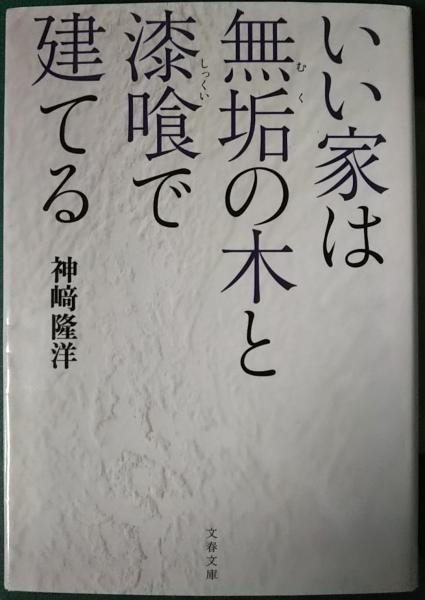 いい家は
無垢の木と
むく
漆喰で
しっくい
建てる
神﨑隆洋
文春文庫